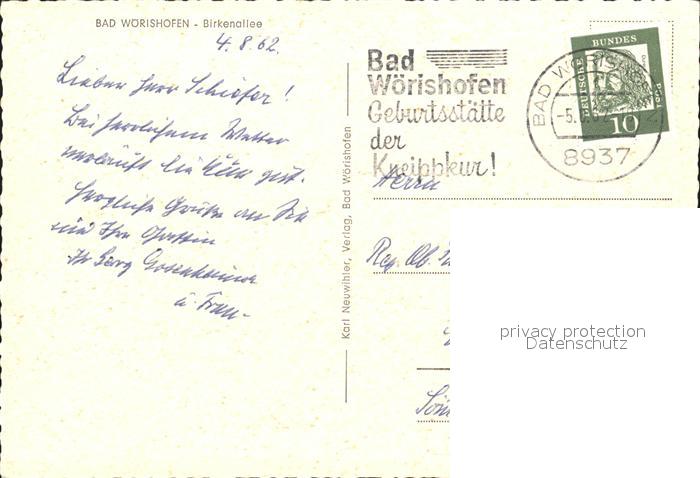 BAD WÖRISHOFEN - Birkenallee
4.8.62.
Lieber Herr Schäfer!
Bei herrlichem Wetter
verläuft die Kur gut.
Herzliche Grüße an Sie
und Ihre Gattin
Ihr Georg
u. Frau-
Karl Neuwihler, Verlag, Bad Wörishofen
Bad
Wörishofen
Geburtsstätte
der
Kneippkur!
BAD WÖRISHOFEN
8937
DEUTSCHE BUNDESPOST
10
Herrn
Reg. Ob.
privacy protection
Datenschutz